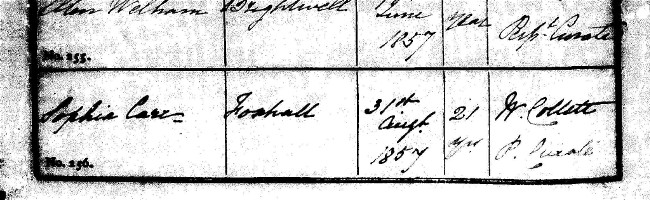 Welham Brightwell June year
1857 Curate
No. 255.
Sophia Foxhall 31st 21 W. Collett
Augt. yrs P. Curate
1857
No. 256.